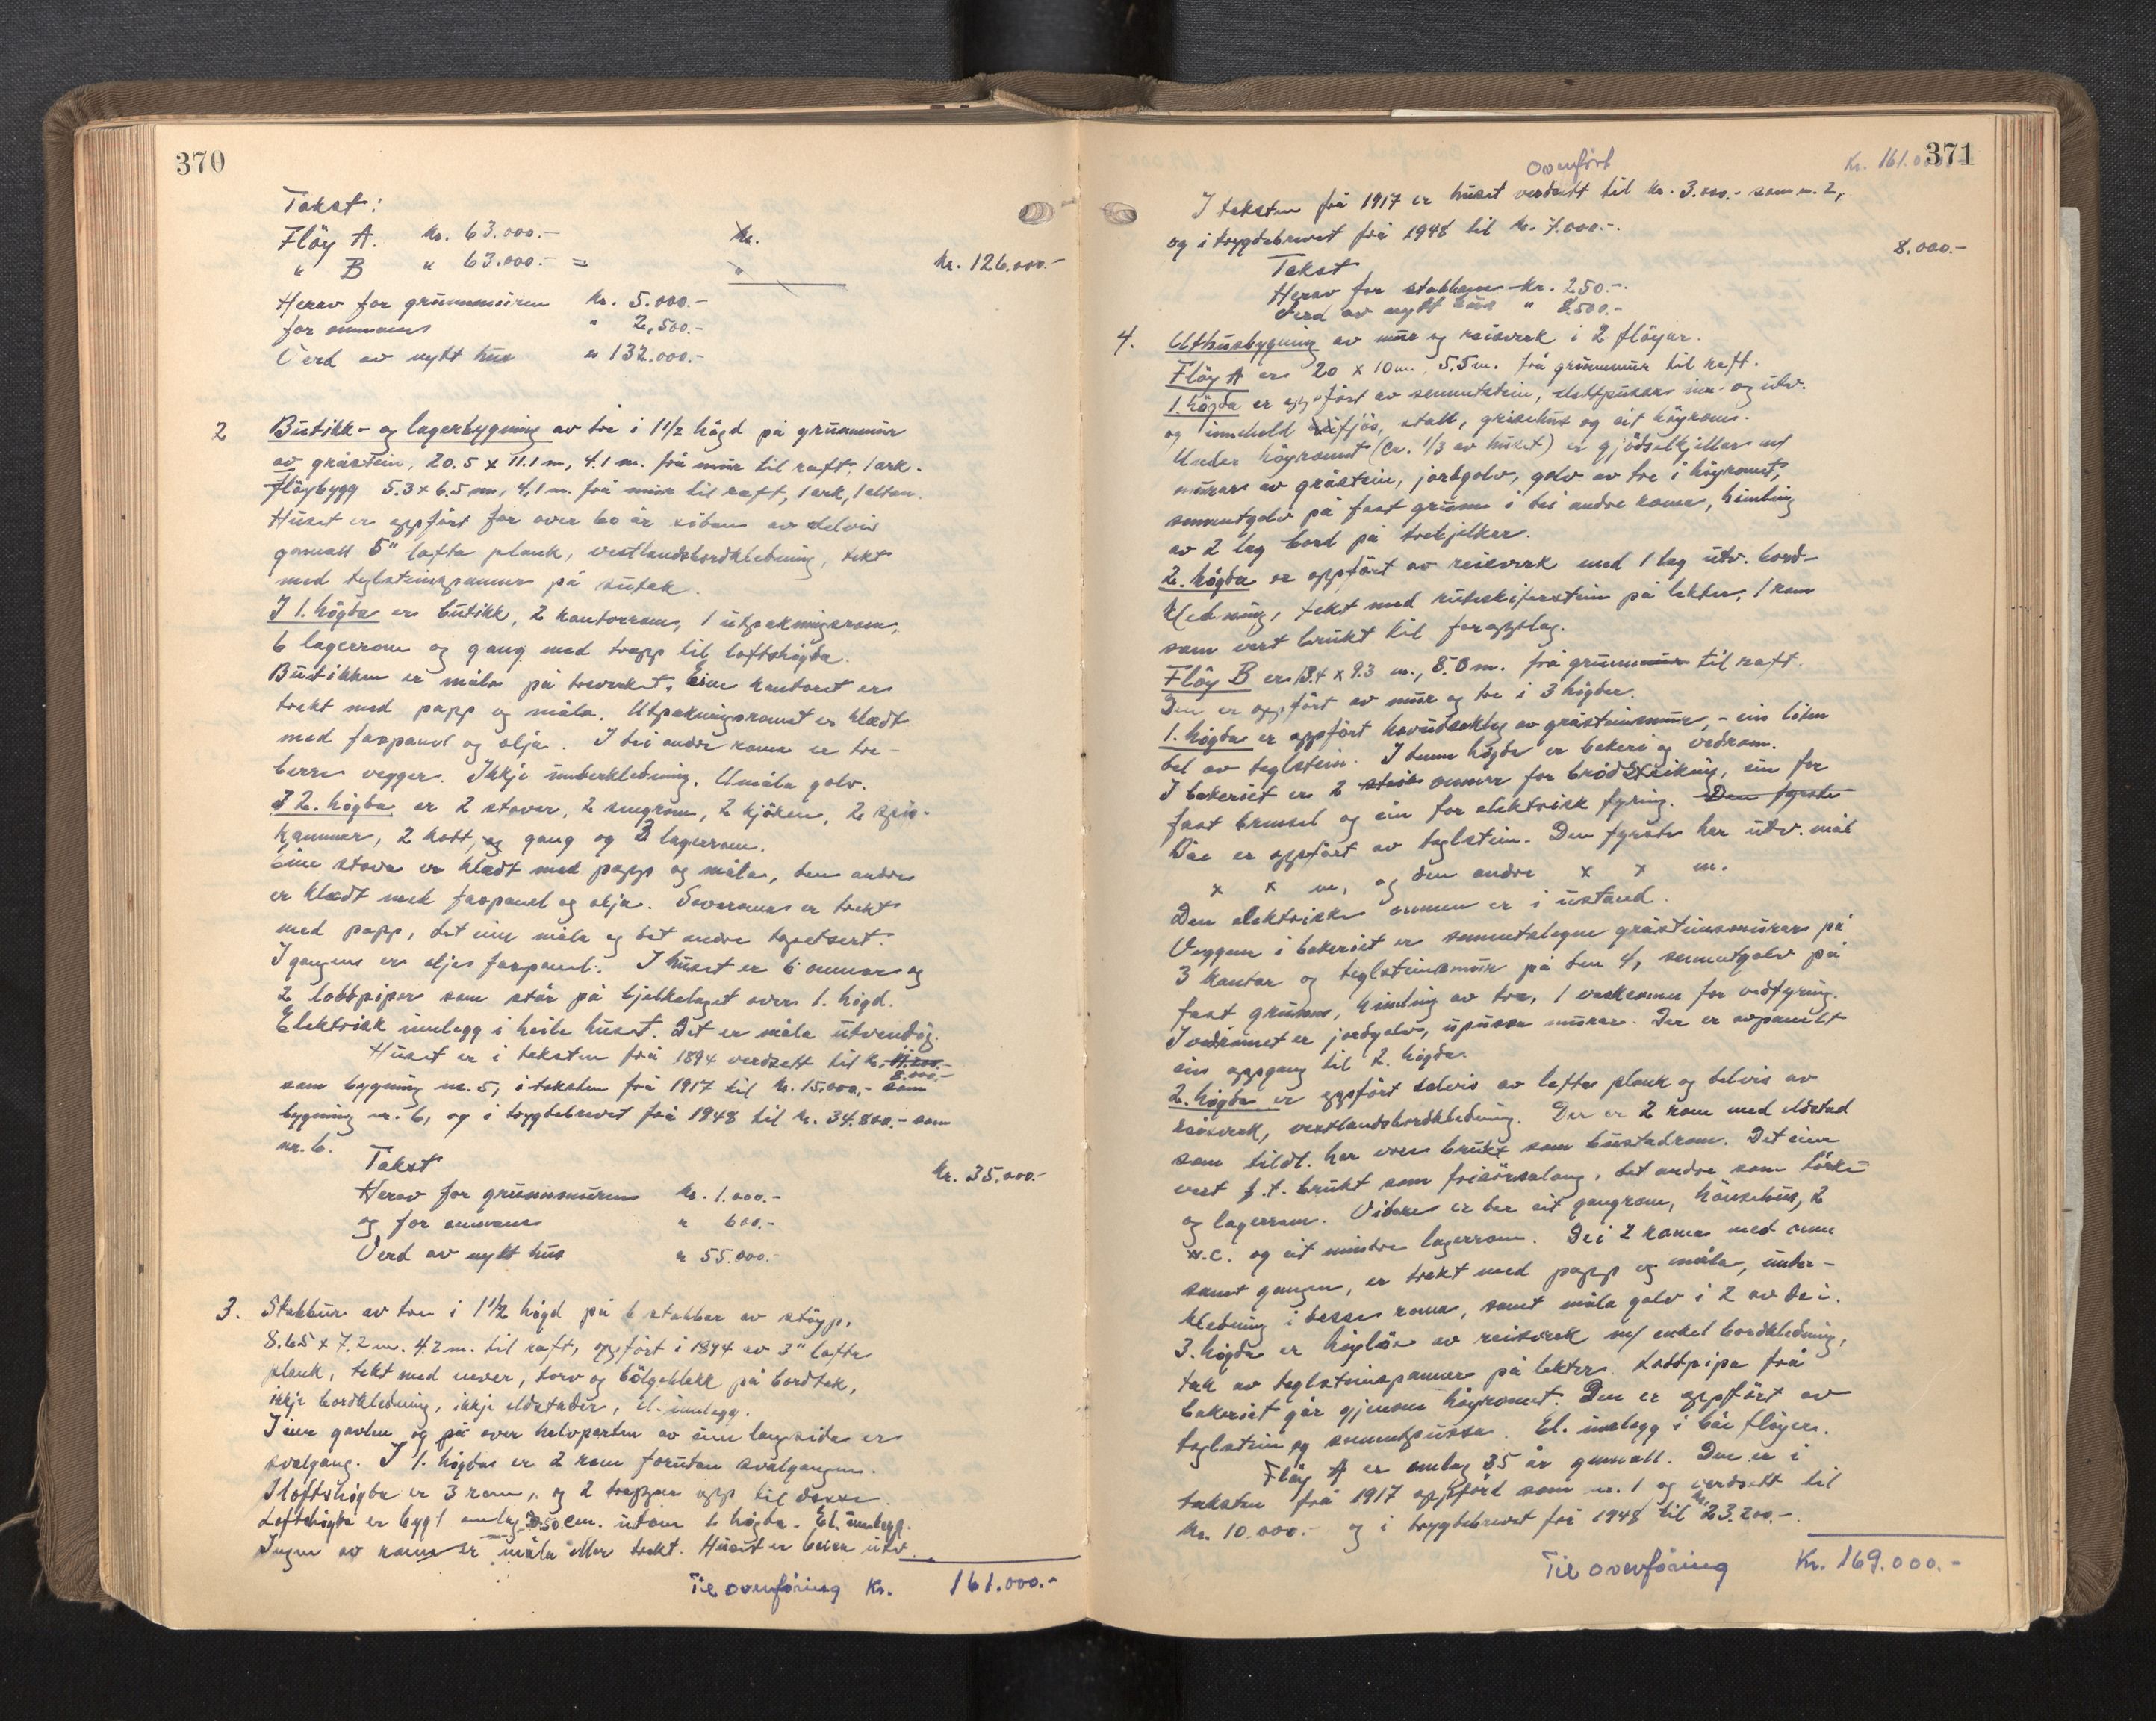 370
Takst:
Fløy A. kr. 63.000.- kr.
" B " 63.000.- = " kr. 126.000.-
Herav for grunnmuren kr. 5.000.-
for omnane " 2.500.-
Verd av nytt hus " 132.000.-
2 Butikk- og lagerbygning av tre i 1 1/2 høgd på grunnmur
av gråstein, 20.5 x 11.1 m, 4.1 m. frå mur til raft, 1 ark.
Fløybygg 5.3 x 6.5 m, 4,1 m. frå mur til raft, 1 ark, 1 altan.
Huset er oppført for over 60 år siden av delvis
gamall 5" lafta plank, vestlandsbordkledning, tekt
med teglsteinspanner på sutak.
I 1. høgda er butikk, 2 kontorrom, 1 utpakningsrom,
6 lagerrom og gang med trapp til loftshøgda.
Butikken er måla på treverket. Eine kontoret er
trekt med papp og måla. Utpakningsromet er kledt
med faspanel og olja. I dei andre roma er tre-
berre vegger. Ikkje underkledning. Umåla golv.
I 2. høgda er 2 stover, 2 sengrom, 2 kjøken, 2 spis-
kammer, 2 kott, og gang og 3 lagerrom.
Eine stova er kledt med papp og måla, den andre
er kledt med faspanel og olja. Soveroma er trekt
med papp, det eine måla og det andre tapetsert.
I gangene er olja faspanel. I huset er 6 omnar og
2 loddpiper som står på bjelkelaget over 1. høgd.
Elektrisk innlegg i heile huset. Det er måla utvendig.
Huset er i taksten frå 1894 verdsett til kr.
8.000.-
som bygning nr. 5, i taksten frå 1917 til kr. 15.000,- som
bygning nr. 6, og i trygdebrevet frå 1948 til kr. 34.800.- som
nr. 6.
Takst kr. 35.000.-
Herav for grunnmuren kr. 1.000.-
og for omnane " 600.-
Verd av nytt hus " 55.000.-
3. Stabbur av tre i 1 1/2 høgd på 6 stabbar av støyp.
8.65 x 7.2 m. 4.2 m. til raft, oppført i 1894 av 3" lafta
plank, tekt med never, torv og bölgeblekk på bordtak,
ikkje bordkledning, ikkje eldstader, el. innlegg.
I eine gavlen og på over halvparten av eine langsida er
svalgang. I 1. høgda er 2 rom forutan svalgangen.
I loftshøgda er 3 rom, og 2 trapper opp til desse.
Loftshøgda er bygt omlag 50 cm. utom 1. høgda. El. innlegg.
Ingen av roma er måla eller trekt. Huset er beisa utv.
Til overføring Kr. 161.000.-
371
Overført Kr. 161.000.-
I taksten frå 1917 er huset verdsett til kr. 3.000.- som nr. 2,
og i trygdebrevet frå 1948 til kr. 7.000.-.
Takst 8.000.-
Herav for stabbane kr. 250.-.
Verd av nytt hus " 8.500.-
4. Uthusbygning av mur og reisverk i 2 fløyar.
Fløy A er 20 x 10 m. 5.5 m. frå grunnmur til raft.
1. høgda er oppført av sementstein, slettpussa inn- og utv.
og inneheld fjøs, stall, grisehus og eit høyrom.
Under høyromet (ca. 1/3 av huset) er gjødselkjellar m/
murar av gråstein, jordgolv, golv av tre i høyromet,
sementgolv på fast grunn i dei andre roma, himling
av 2 lag bord på trebjelker.
2. høgda er oppført av reisverk med 1 lag utv. bord-
kledning, tekt med ruteskiferstein på lekter, 1 rom
som vert brukt til foropplag.
Fløy B er 13.4 x 9.3 m., 8.0 m. frå grunnmur til raft.
Den er oppført av mur og tre i 3 høgder.
1. høgda er oppført hovudsakleg av gråsteinsmur, - ein liten
del av teglstein. I denne høgda er bakeri og vedrom.
I bakeriet er 2 omner for brødsteiking, ein for
fast brensel og ein for elektrisk fyring. Den fyrste
Båe er oppført av teglstein. Den fyrste har utv. mål
x x m, og den andre x x m.
Den elektriske omnen er i ustand.
Veggene i bakeriet er sementslegne gråsteinsmurar på
3 kantar og teglsteinsmur på den 4, sementgolv på
fast grunn, himling av tre, 1 vaskeomn for vedfyring.
I vedromet er jordgolv, upussa murar. Der er avpanelt
ein oppgang til 2. høgda.
2. høgda er oppført delvis av lafta plank og delvis av
reisverk, vestlandsbordkledning. Der er 2 rom med eldstad
som tildl. har vore brukt som bustadrom. Det eine
vert f.t. brukt som frisørsalong, det andre som tørke-
og lagerrom. Vidare er der eit gangrom, hønsehus, 2
w.c. og eit mindre lagerrom. Dei 2 roma med omn
samt gangen, er trekt med papp og måla, under-
kledning i desse roma, samt måla golv i 2 av dei.
3. høgda er høyløa av reisverk m/ enkel bordkledning,
tak av teglsteinspanner på lekter. Loddpipa frå
bakeriet går gjennom høyromet. Den er oppført av
teglstein og sementpussa. El. innlegg i båe fløyer.
Fløy A er omlag 35 år gamall. Den er i
taksten frå 1917 oppførd som nr. 1 og verdsett til
kr. 10.000.- og i trygdebrevet frå 1948 til kr. 23.200.-.
Til overføring Kr. 169.000.-